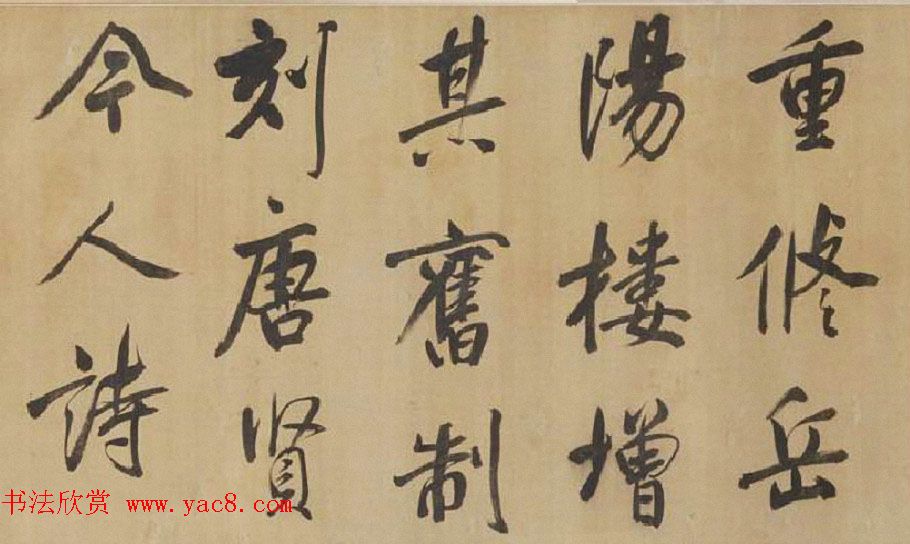 重修岳
陽樓增
其舊制
刻唐賢
今人詩
书法欣赏 www.yac8.com